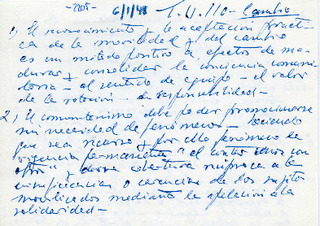 -2205- 6/1/48 T.U. 110- Cambio
1) El reconocimiento y la aceptación práctica
de la movilidad y del cambio
es un método positivo a efectos de madurar
y consolidar la conciencia comunitaria
- el sentido de equipo - el valor
de la rotación - la responsabilidad -
2) El comunitarismo debe poder promocionarse
sin necesidad de fenómenos - haciendo
que sea recurso y por ello fenómeno de
vigencia permanente "el contar unos con
otros" y darse cobertura recíproca a la
insuficiencia o carencia de los sujetos
movilizados mediante la apelación a la
solidaridad -